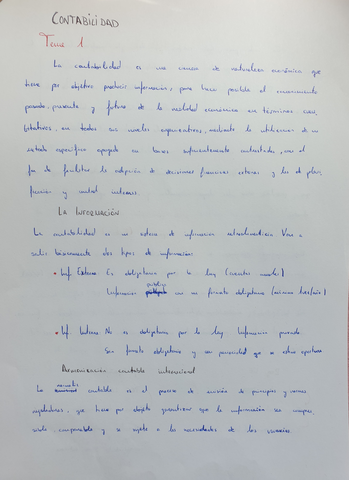 CONTABILIDAD
Tema 1
La contabilidad es una ciencia de naturaleza económica que
tiene por objetivo producir información, para hacer posible el conocimiento
pasado, presente y futuro de la realidad económica en términos cuan-
titativos, en todos sus niveles organizativos, mediante la utilización de un
método específico apoyado en bases suficientemente contrastadas, con el
fin de facilitar la adopción de decisiones financieras externas y las de plani-
ficación y control internas.
LA INFORMACIÓN
La contabilidad es un sistema de información
salir básicamente dos tipos de información:
• Inf. Externa. Es obligatoria por la ley (cuentas anuales)
Información pública con un formato obligatorio
• Inf. Interna. No es obligatoria por la ley. Información privada.
Sin formato obligatorio y con periodicidad que se estime oportuna
Armonización contable internacional
La contable es el proceso de emisión de principios y normas
reguladoras, que tiene por objeto garantizar que la información sea compren-
sible, comparable y se ajuste a las necesidades de los usuarios.